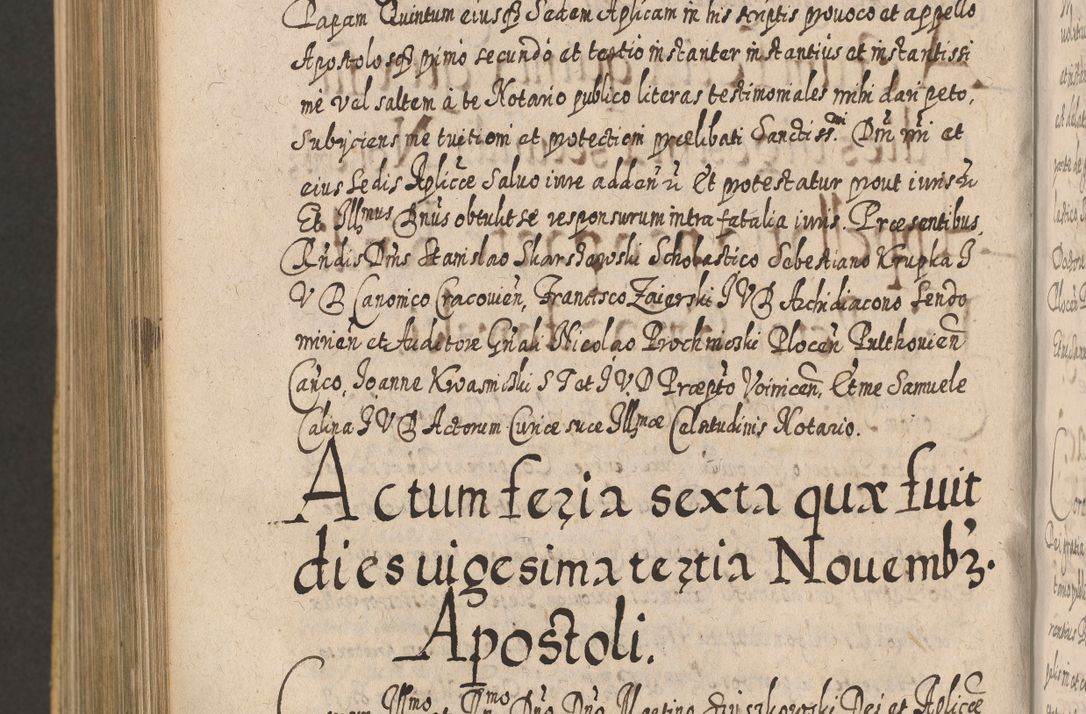 Papam Quintum eiusq3 Sedem Aplicam in his scriptis provoco et appello
Apostolosq3 primo secundo et tertio instanter instantius et instantissi
me vel saltem à te Notario publico literas testimoniales mihi dari peto,
Subijciens me tuitioni et protectioni prælibati Sanctiss.mi Dni nri et
eius Sedis Aplicæ Salvo iure adden Et protestatur prout iuris
Et Illmus Dnus obtulit se responsurum intra fatalia iuris. Præsentibus
Rndis Dnis Stanislao Skarszewski Scholastico Sebestiano Krupka J
V D Canonico Cracovien, Francisco Zaierski J V D Achidiacono Sendo
mirien et Auditore Gnali Nicolao Prochnicski Plocen Pultkovien
Canco, Joanne Kwasnicski S T et J V D Præpto Voinicen, Et me Samuele
Calina J V D Actorum Curiæ suæ Illmæ Celsitudinis Notario.
Actum feria sexta quæ fuit
dies uigesima tertia Nouemb3.
Apostoli.
Coram Illmo Rmo Dno Dno Martino Szyszkowski Dei et Aplicæ